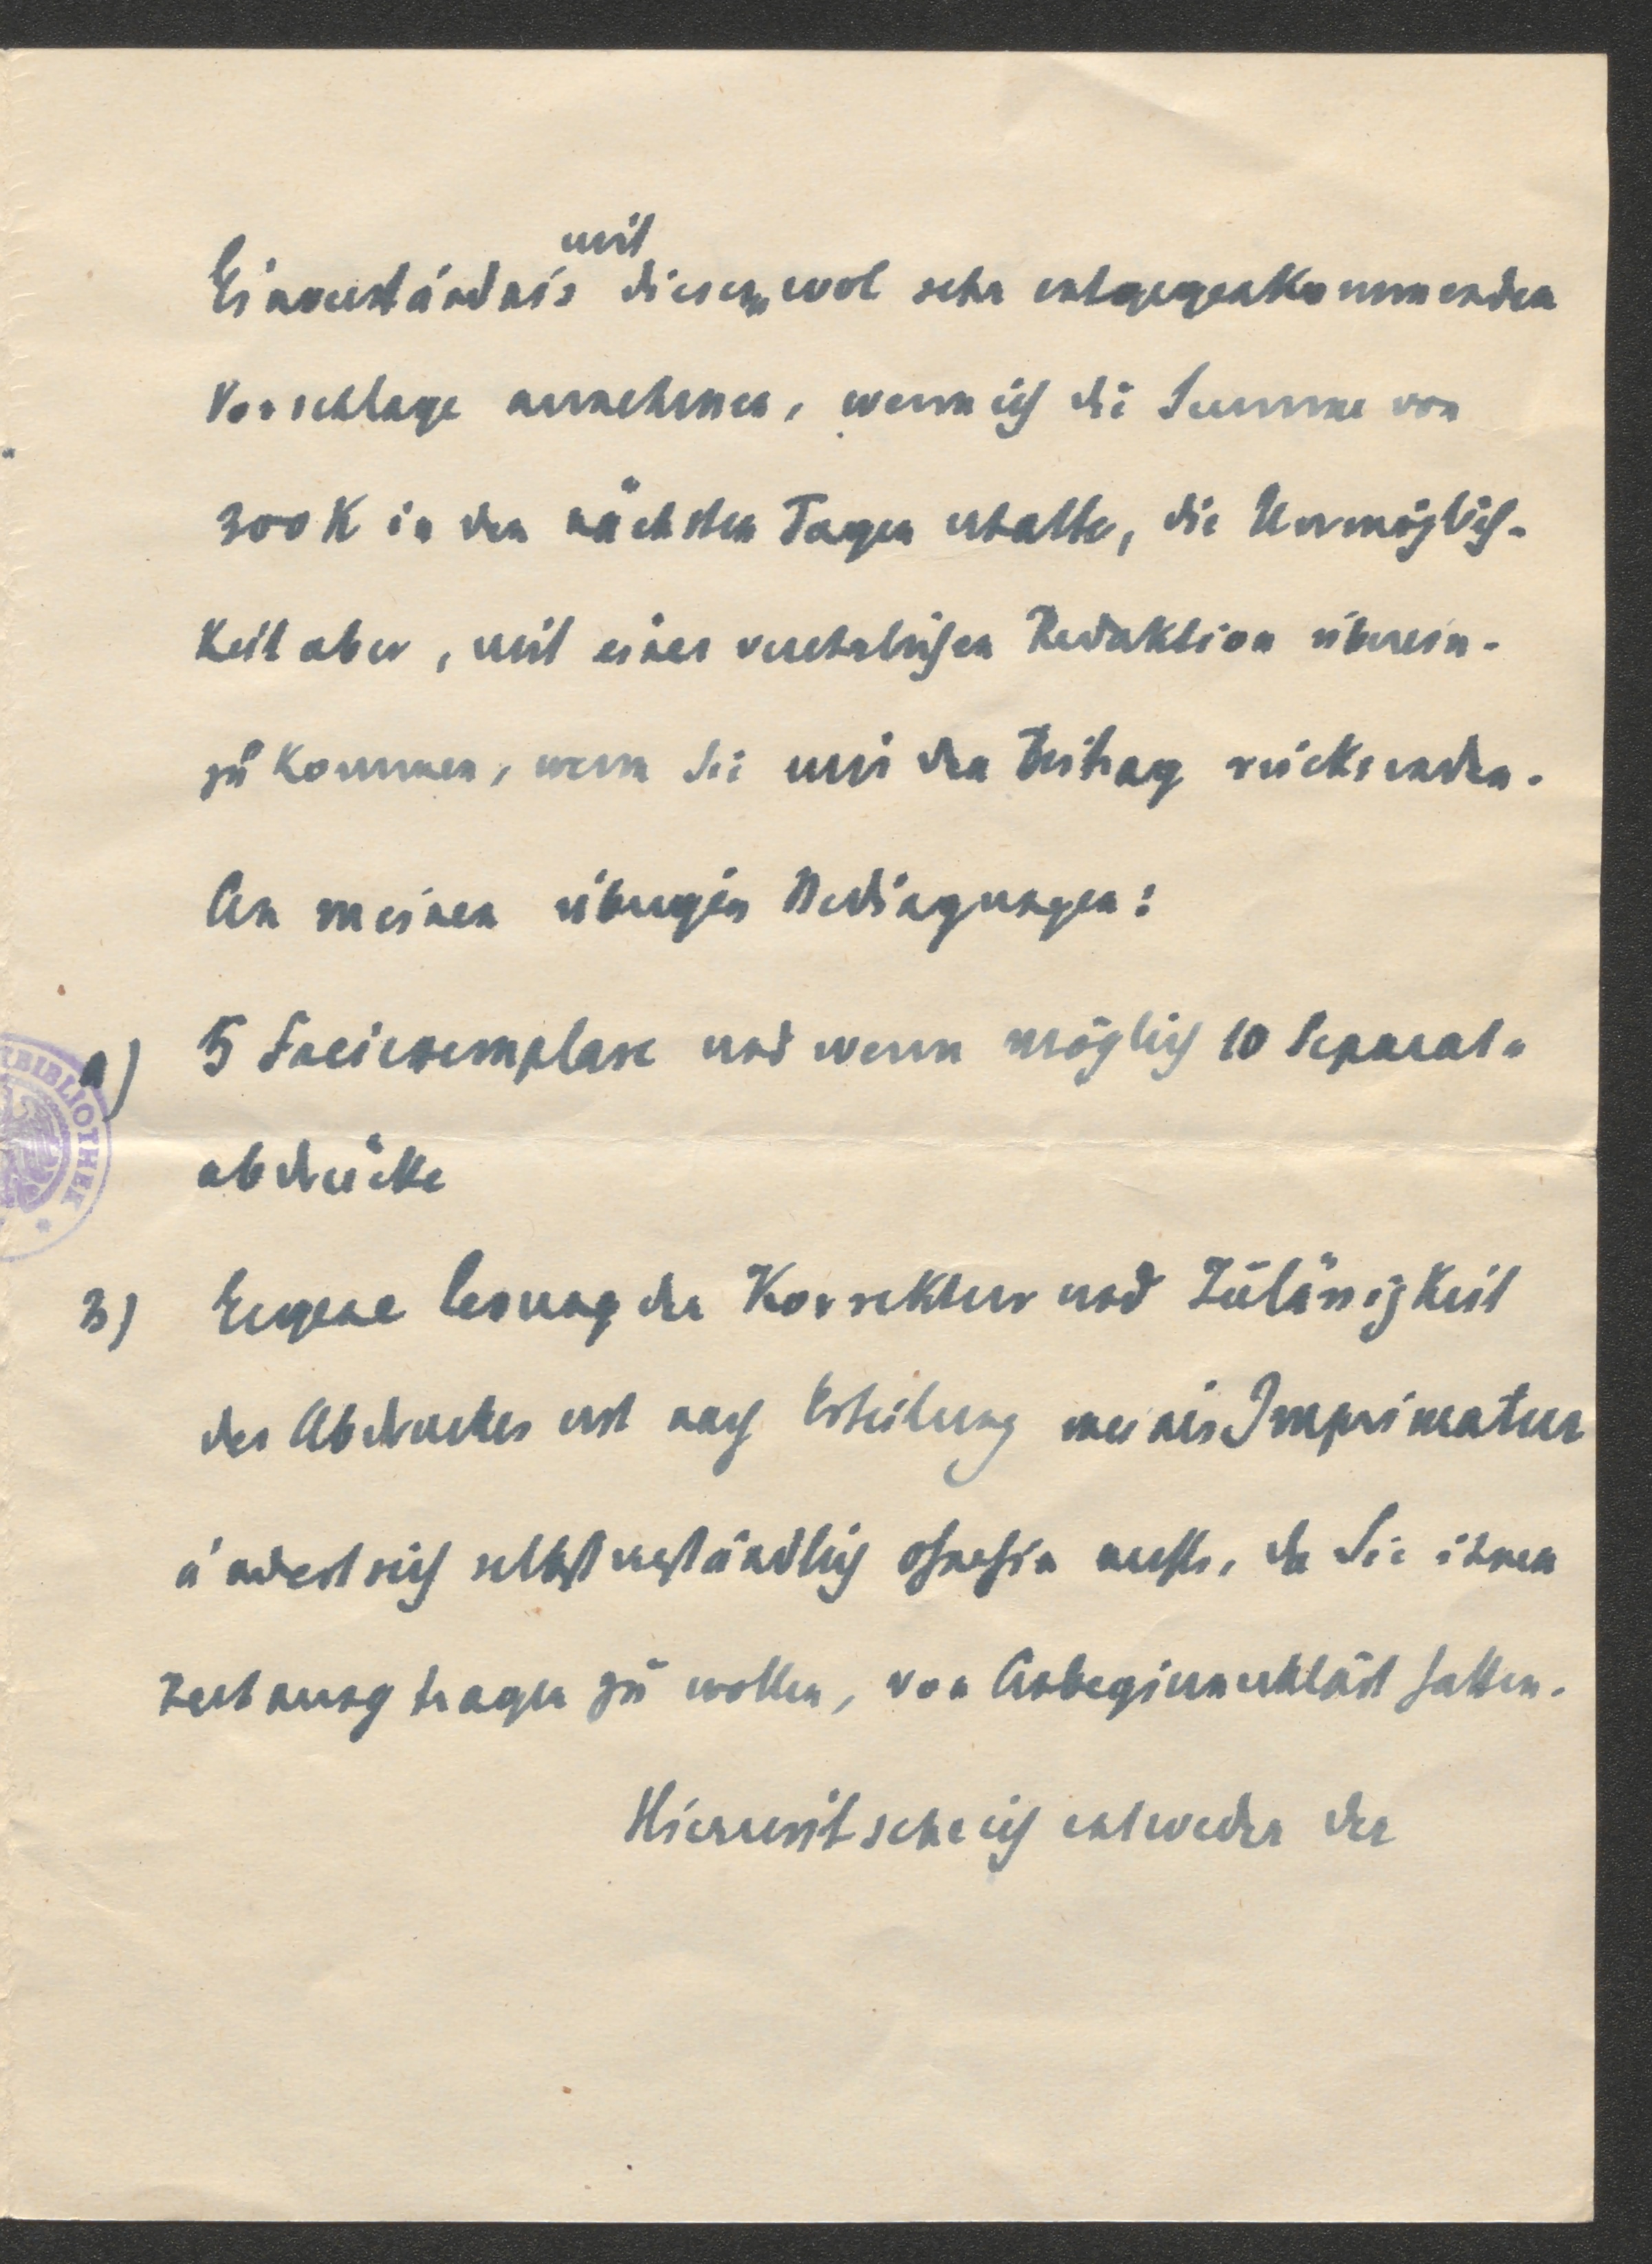 mit
Einverständnis diesem wol sehr entgegenkommenden
Vorschlage annehmen, wenn ich die Summe von
300 K in den nächsten Tagen erhalte, die Unmöglich-
keit aber, mit einer verehrlichen Redaktion überein-
zukommen, wenn Sie mir den Beitrag rücksenden.
An meinen übrigen Bedingungen:
a) 5 Freiexemplare und wenn möglich 10 Separat-
abdrücke
B) Eigene Lesung der Korrektur und Zulässigkeit
des Abdruckes erst nach Erteilung meines Imprimatur
ändert sich selbstverständlich ohnehin nichts, da Sie ihnen
Rechnung tragen zu wollen, von Anbeginn erklärt hatten.
Hiermit sehe ich entweder der
BIBLIOTHEK